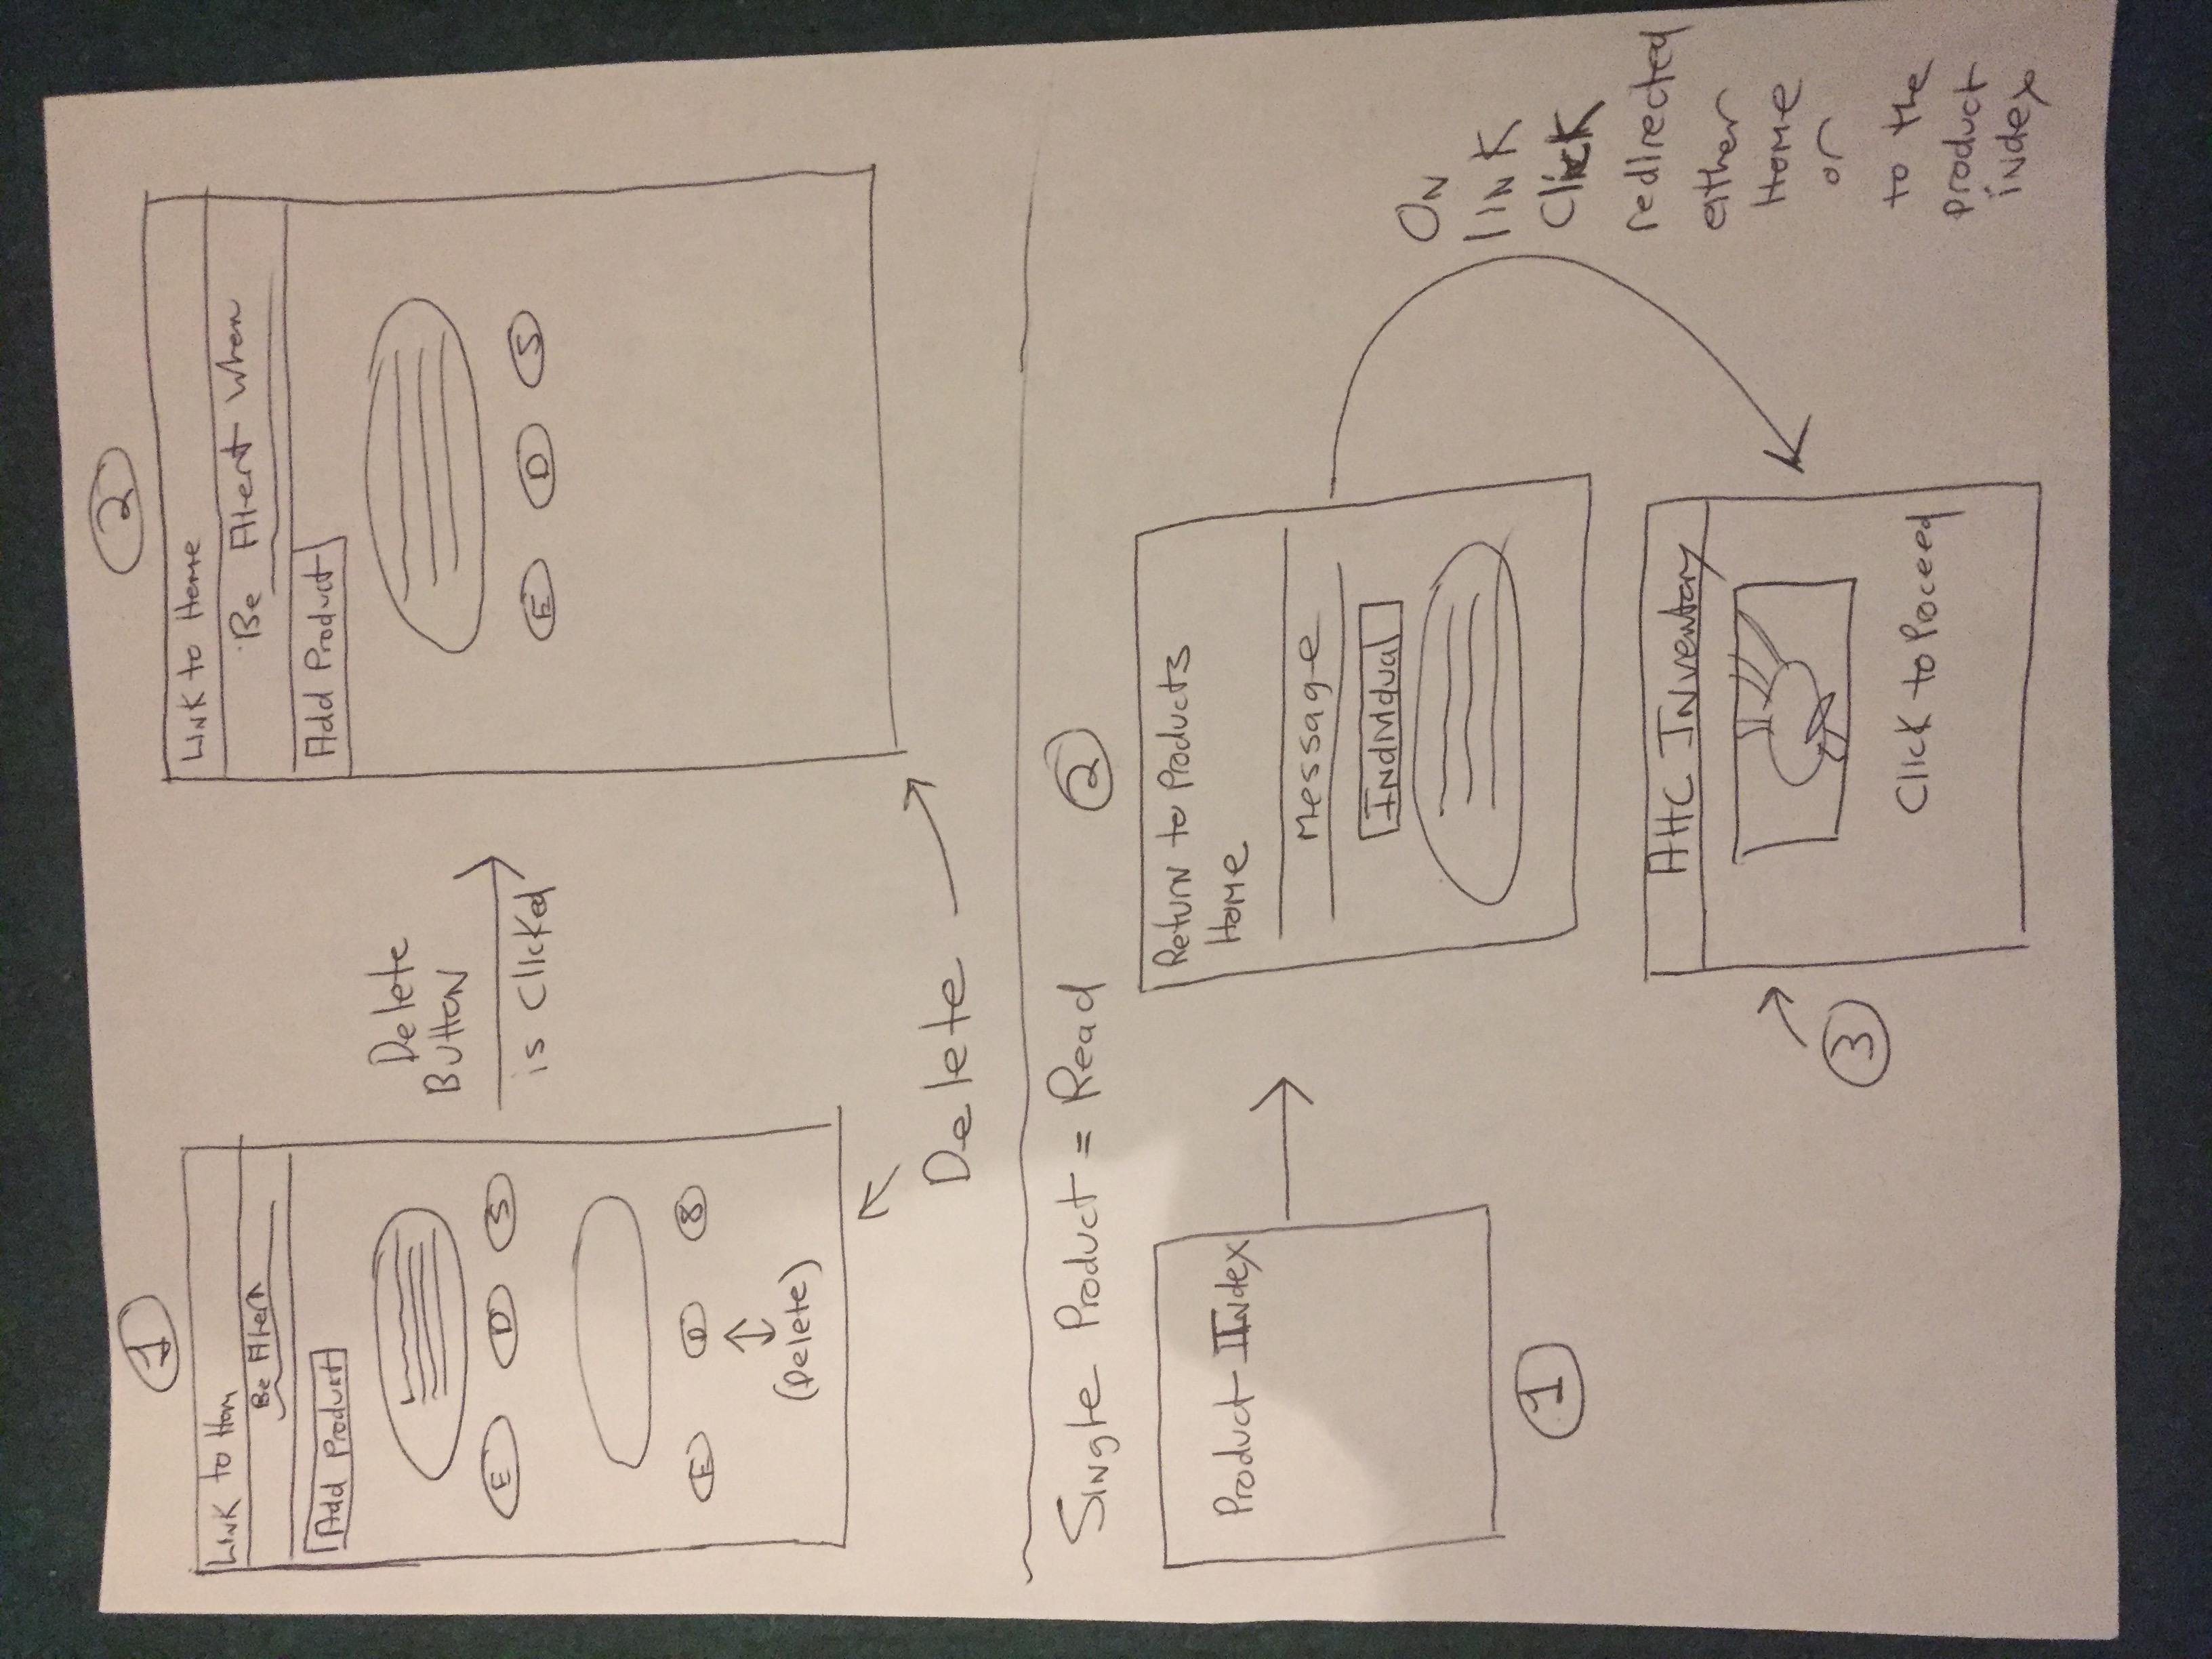 1
Link to Hom
Be Alert
Add Product
E D S
E D S
(Delete)
Delete
Button
is Clicked
2
Link to Home
Be Alert When
Add Product
E D S
Delete
Single Product = Read
Product Index
1
2
Return to Products
Home
Message
Individual
On
link
Click
redirected
either
Home
or
to the
product
index
3
AHC Inventory
Click to Proceed